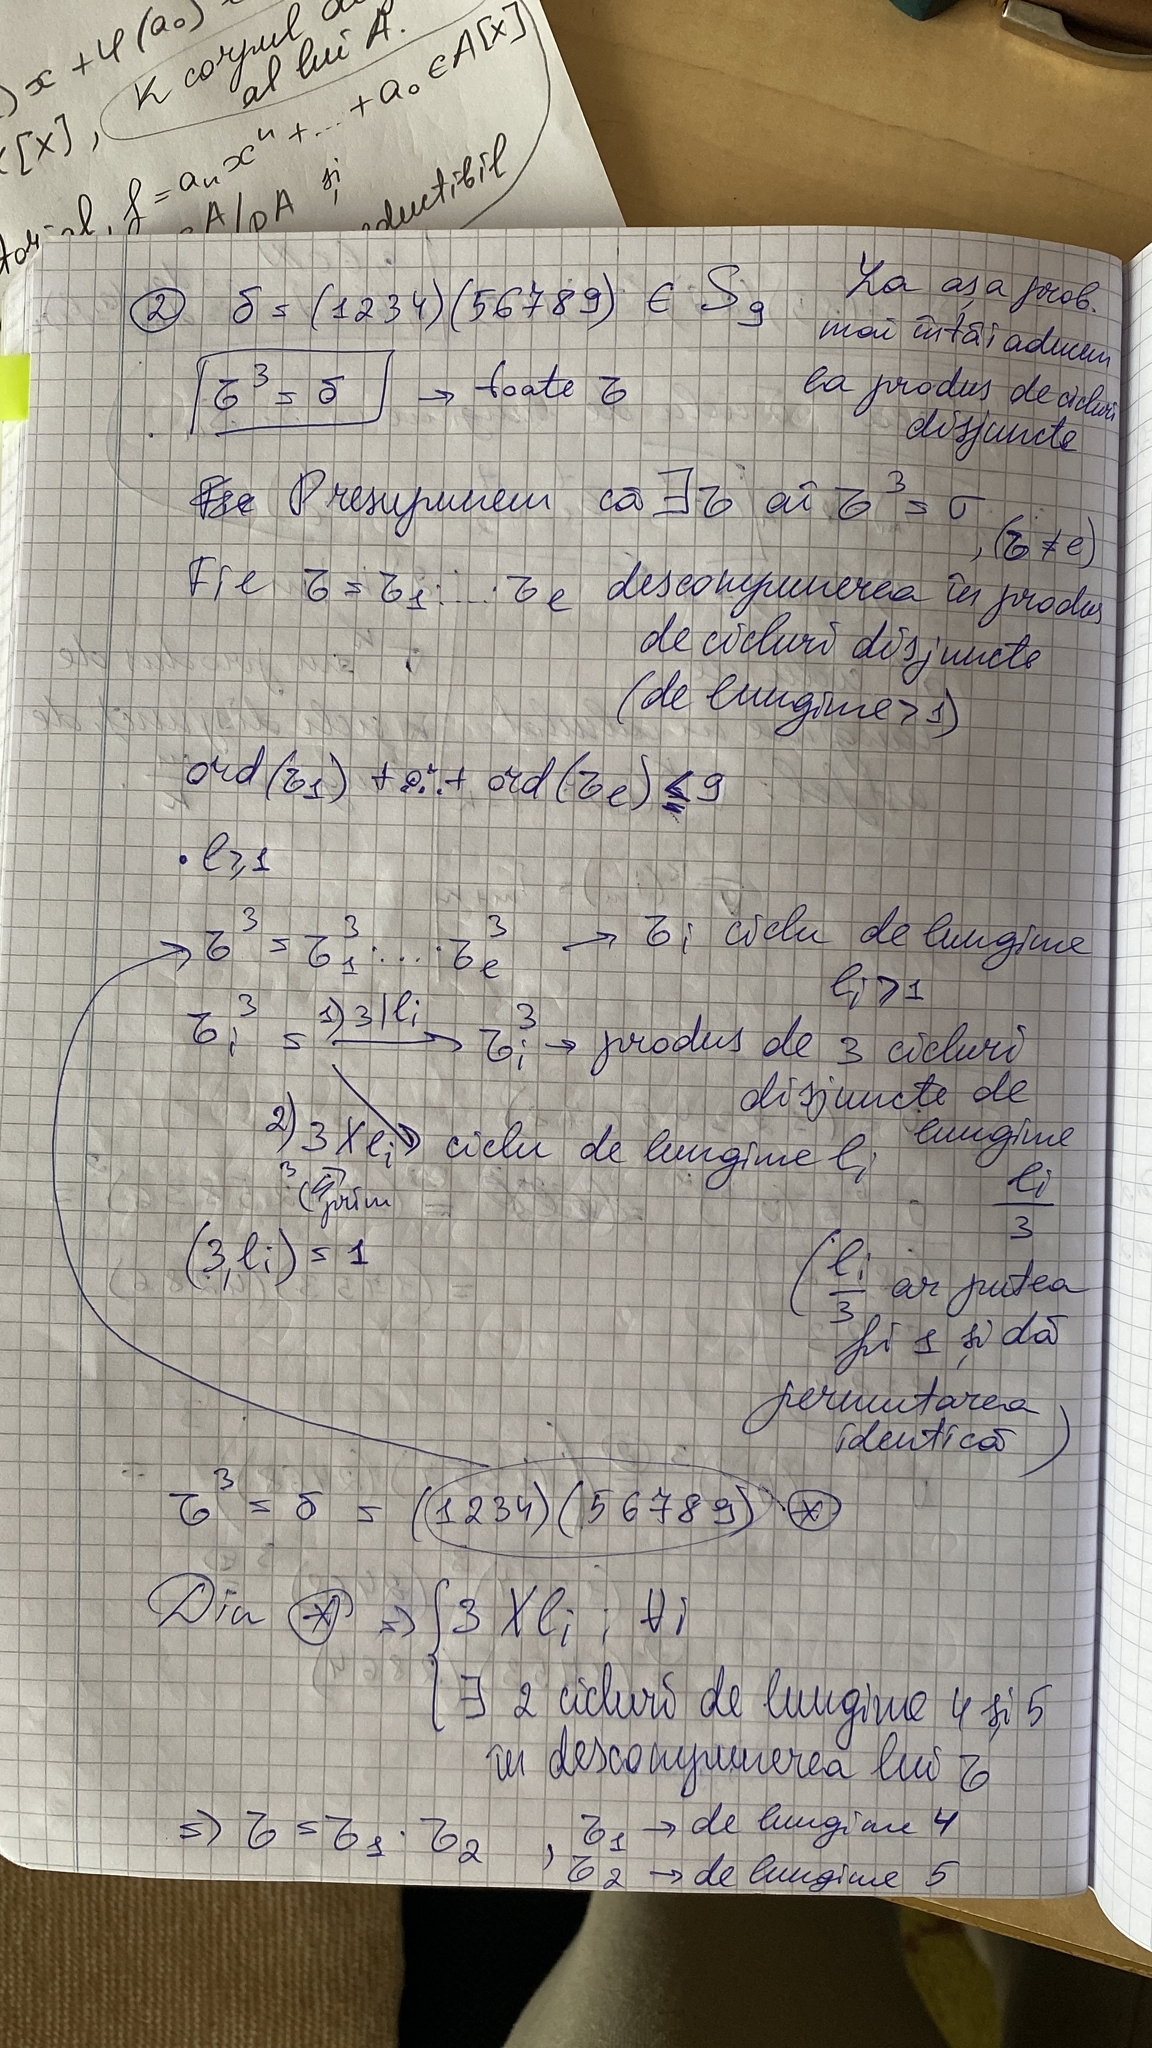 )x + φ(a₀)
K corpul de
al lui A.
[X],
f = aₙxⁿ + ... + a₀ ∈ A[X]
A/pA și
② σ = (1234)(56789) ∈ S₉
La așa prob.
mai întâi aducem
la produs de cicluri
disjuncte
τ³ = σ → toate τ
Presupunem că ∃ τ aî τ³ = σ
, (τ ≠ e)
Fie τ = τ₁ · ... · τₑ descompunerea în produs
de cicluri disjuncte
(de lungime > 1)
ord(τ₁) + ... + ord(τₑ) ≤ 9
• l ≥ 1
→ τ³ = τ₁³ · ... · τₑ³ → τᵢ ciclu de lungime
lᵢ > 1
τᵢ³ = 1) 3 | lᵢ → τᵢ³ → produs de 3 cicluri
disjuncte de
lungime
lᵢ/3
2) 3 ∤ lᵢ → ciclu de lungime lᵢ
3 prim
(3, lᵢ) = 1
(lᵢ/3 ar putea
fi 1 și dă
permutarea
identică)
τ³ = σ = (1234)(56789) ⊛
Din ⊛ ⇒ { 3 ∤ lᵢ ; ∀i
∃ 2 cicluri de lungime 4 și 5
în descompunerea lui τ
⇒ τ = τ₁ · τ₂ , τ₁ → de lungime 4
τ₂ → de lungime 5